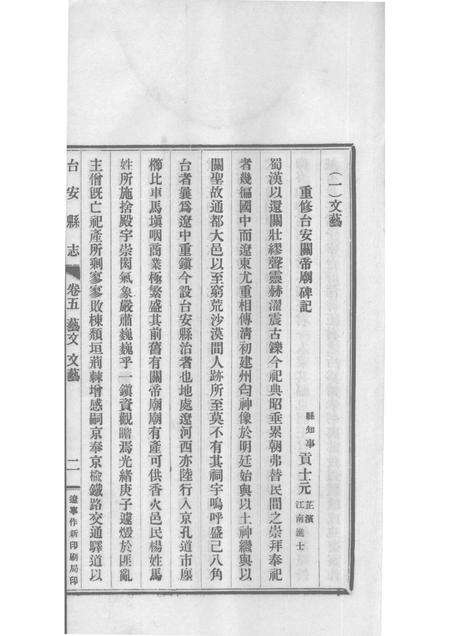 (一)文藝
重修台安關帝廟碑記
縣知事 貢士元 芷濱 江南進士
蜀漢以還關壯繆聲靈赫濯震古鑠今祀典昭垂累朝弗替民間之崇拜奉祀
者幾徧國中而遼東尤重相傳淸初建州匄神像於明廷始與以土神繼與以
關聖故通都大邑以至窮荒沙漠間人跡所至莫不有其祠宇嗚呼盛已八角
台者曩爲遼中重鎭今設台安縣治者也地處遼河西亦陸行入京孔道市廛
櫛比車馬塡咽商業極繁盛其前舊有關帝廟廟有產可供香火邑民楊姓馬
姓所施捨殿宇崇閎氣象嚴肅巍巍乎一鎭資觀瞻焉光緒庚子遽燬於匪亂
主僧旣亡祀產所剩寥寥敗棟頹垣荊棘增感嗣京奉京楡鐵路交通驛道以
台安縣志 卷五 藝文 文藝 二 遼寧作新印刷局印